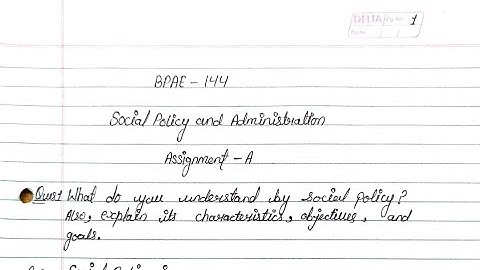 DELTA Pg No. 1
Date
BPAE - 144
Social Policy and Administration
Assignment - A
Ques1 What do you understand by social policy?
Also, explain its characteristics, objectives, and
goals.